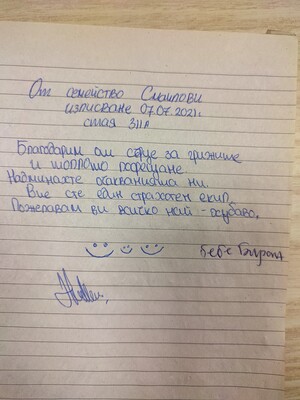 От семейство Смаилови
изписване 07.07.2021г.
стая 311А
Благодарим от сърце за грижите
и топлото посрещане.
Надминахте очакванията ни.
Вие сте един страхотен екип.
Пожелавам ви всичко най-хубаво.
бебе